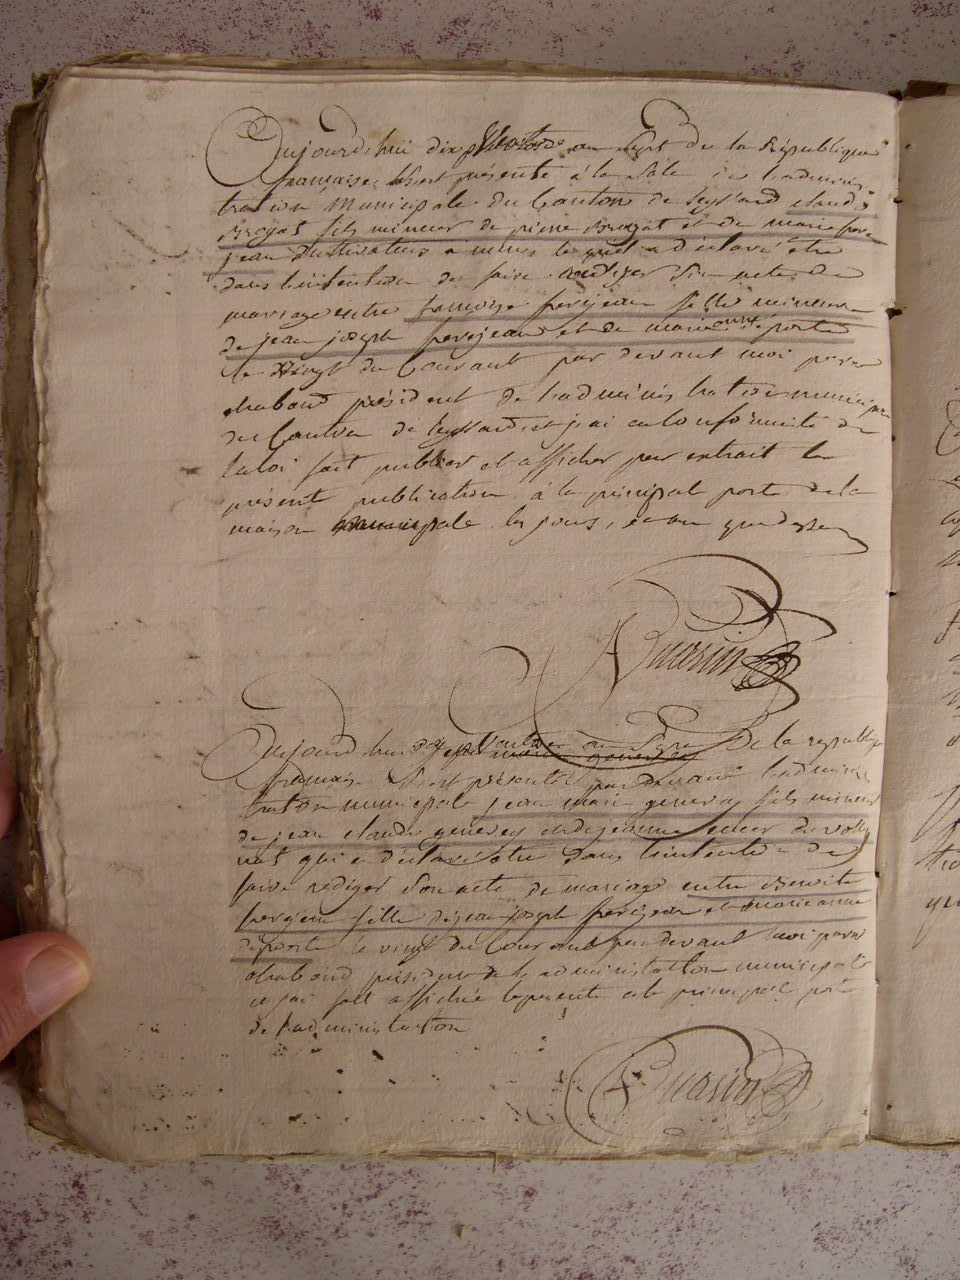 Aujourd'hui dix Ventose an Sept de la République
française s'est présenté à la Sale de l'adminis
tration Municipale du Canton de Leyssard claude
Brogat fils mineur de pierre Brogat et de marie fere
jean Cultivateurs a lequel a déclaré être
dans l'intention de faire rédiger son acte de
mariage entre françoise ferejean fille mineure
de jean joseph ferejean et de marie anne déporte
le Vingt du Courant par devant moi pierre
chabond président de l'administration municipale
du Canton de Leyssard et j'ai en conformité de
la loi fait publier et afficher par extrait la
présent publication à la principal porte de la
maison municipale les jours, et an que dessus
ABuarin
Aujourd'hui dix Ventose an Sept De la republique
française s'est présenté par devant l'adminis
tration municipale jean marie generey fils mineur
de jean claude generey et de jeanne de vol
nat qui a déclaré être dans l'intention de
faire rediger son acte de mariage entre Benoite
ferejean fille de jean joseph ferejean et marie anne
déporte le vingt du Courant par devant moi pierre
chabond président de l'administration municipale
et j'ai fait affiché la présente a la principale porte
de l'administration
ABuarin